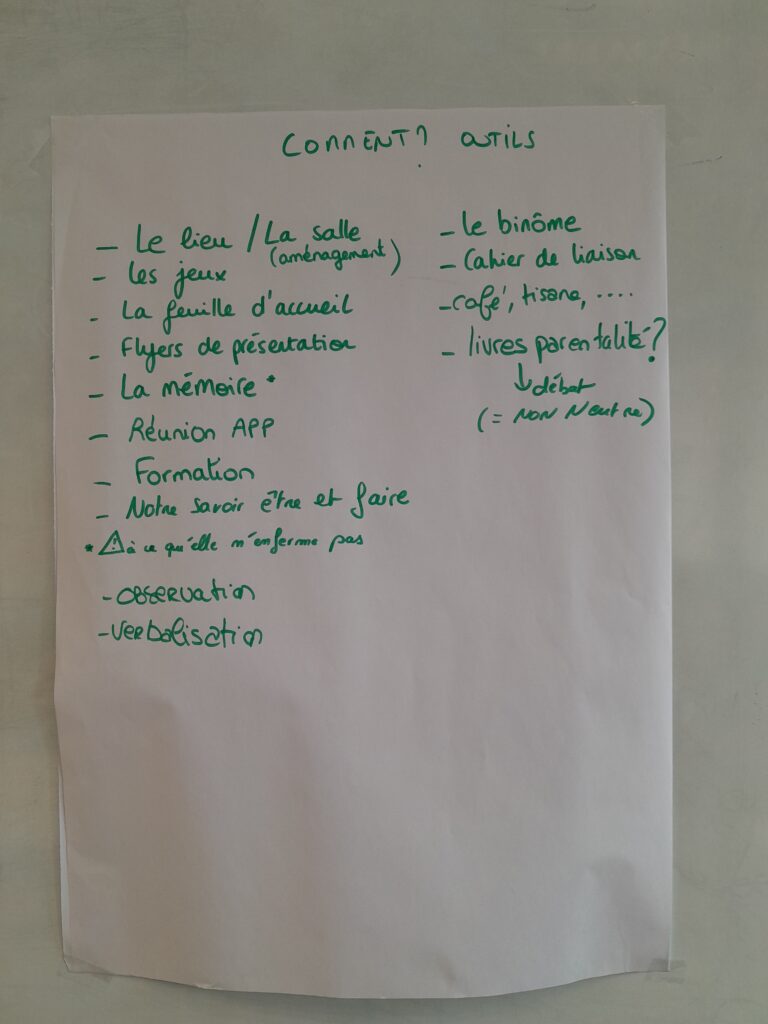 COMMENT? OUTILS
- Le lieu / La salle
(aménagement)
- Les jeux
- La feuille d'accueil
- Flyers de présentation
- La mémoire *
- Réunion APP
- Formation
- Notre savoir être et faire
* ⚠ à ce qu'elle m'enferme pas
- OBSERVATION
- VERBALISATION
- Le binôme
- Cahier de liaison
- café, tisane, ....
- livres parentalité?
↓ débat
(= NON Neutre)